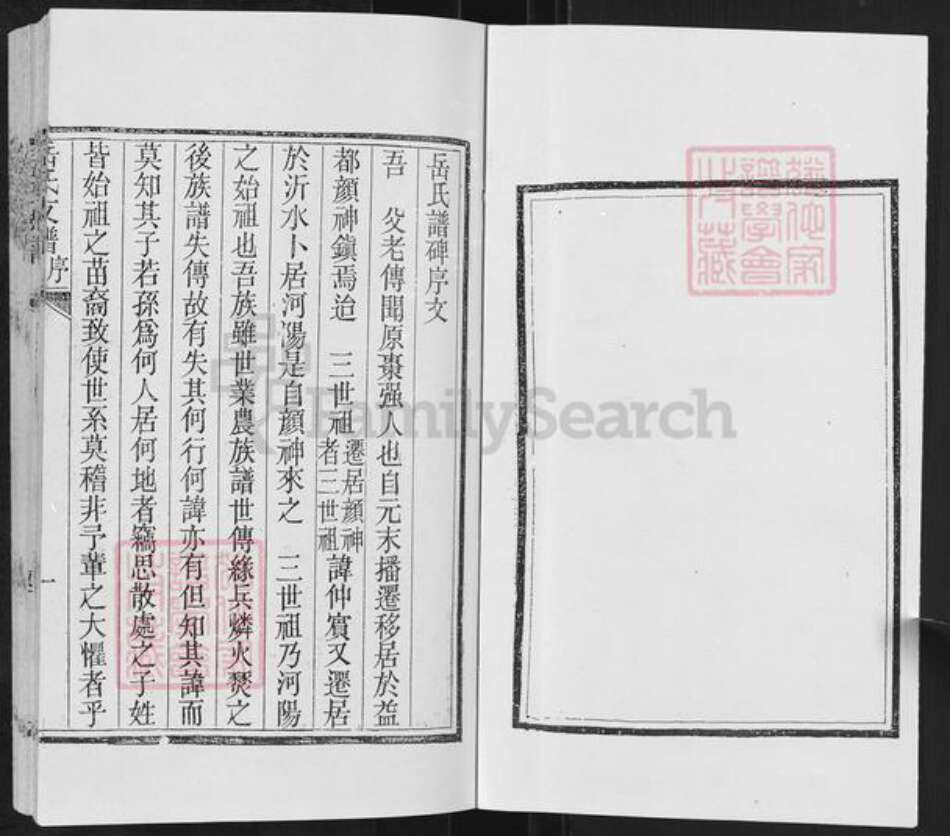 岳氏譜碑序文
吾　父老傳聞原棗强人也自元末播遷移居於益
都顏神鎮焉迨　三世祖遷居顏神者三世祖諱仲賓又遷居
於沂水卜居河陽是自顏神來之　三世祖乃河陽
之始祖也吾族雖世業農族譜世傳緣兵燐火燹之
後族譜失傳故有失其何行何諱亦有但知其諱而
莫知其子若孫爲何人居何地者竊思散處之子姓
皆始祖之苗裔致使世系莫稽非予輩之大懼者乎
岳氏支譜
序
一
FamilySearch